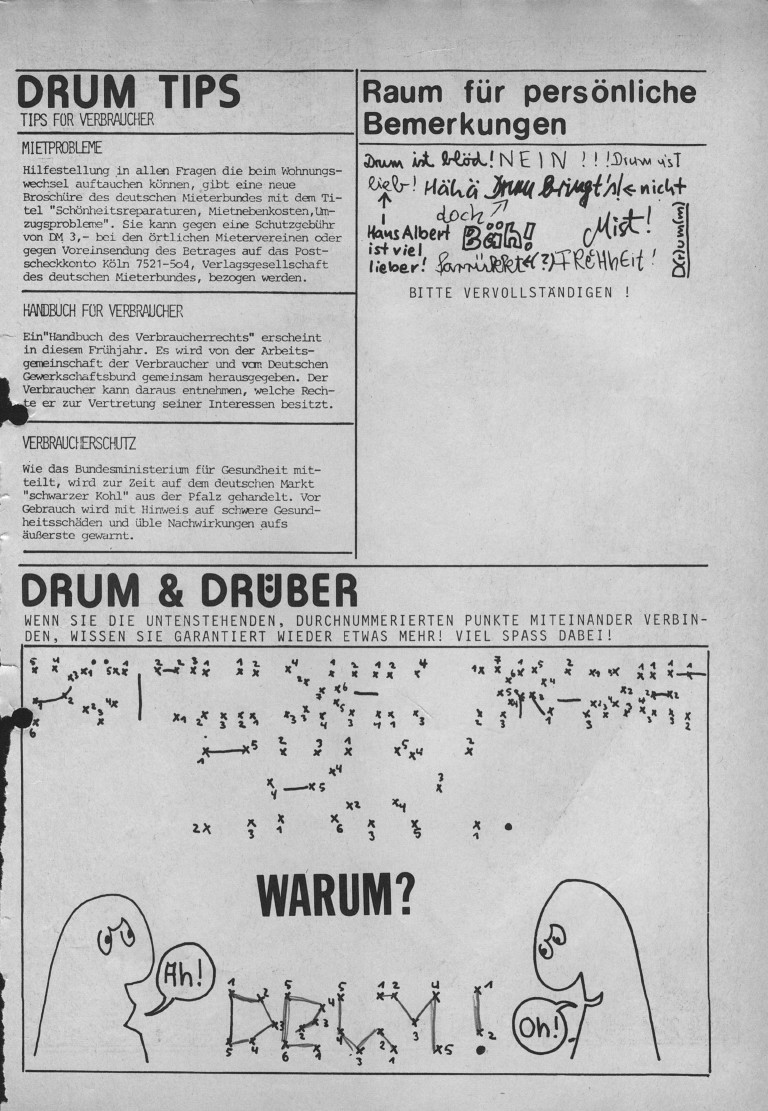 DRUM TIPS
TIPS FÜR VERBRAUCHER
MIETPROBLEME
Hilfestellung in allen Fragen die beim Wohnungs-
wechsel auftauchen können, gibt eine neue
Broschüre des deutschen Mieterbundes mit dem Ti-
tel "Schönheitsreparaturen, Mietnebenkosten,Um-
zugsprobleme". Sie kann gegen eine Schutzgebühr
von DM 3,- bei den örtlichen Mietervereinen oder
gegen Voreinsendung des Betrages auf das Post-
scheckkonto Köln 7521-5o4, Verlagsgesellschaft
des deutschen Mieterbundes, bezogen werden.
HANDBUCH FÜR VERBRAUCHER
Ein"Handbuch des Verbraucherrechts" erscheint
in diesem Frühjahr. Es wird von der Arbeits-
gemeinschaft der Verbraucher und vom Deutschen
Gewerkschaftsbund gemeinsam herausgegeben. Der
Verbraucher kann daraus entnehmen, welche Rech-
te er zur Vertretung seiner Interessen besitzt.
VERBRAUCHERSCHUTZ
Wie das Bundesministerium für Gesundheit mit-
teilt, wird zur Zeit auf dem deutschen Markt
"schwarzer Kohl" aus der Pfalz gehandelt. Vor
Gebrauch wird mit Hinweis auf schwere Gesund-
heitsschäden und üble Nachwirkungen aufs
äußerste gewarnt.
Raum für persönliche
Bemerkungen
Drum ist blöd! NEIN !!! Drum ist
lieb! Hähä Drum bringt's! ← nicht
doch
Mist!
Hans Albert
ist viel
lieber!
Bäh!
FREHhEit!
D(r)um(m)
BITTE VERVOLLSTÄNDIGEN !
DRUM & DRÜBER
WENN SIE DIE UNTENSTEHENDEN, DURCHNUMMERIERTEN PUNKTE MITEINANDER VERBIN-
DEN, WISSEN SIE GARANTIERT WIEDER ETWAS MEHR! VIEL SPASS DABEI!
WARUM?
Ah!
DRUM!
Oh!